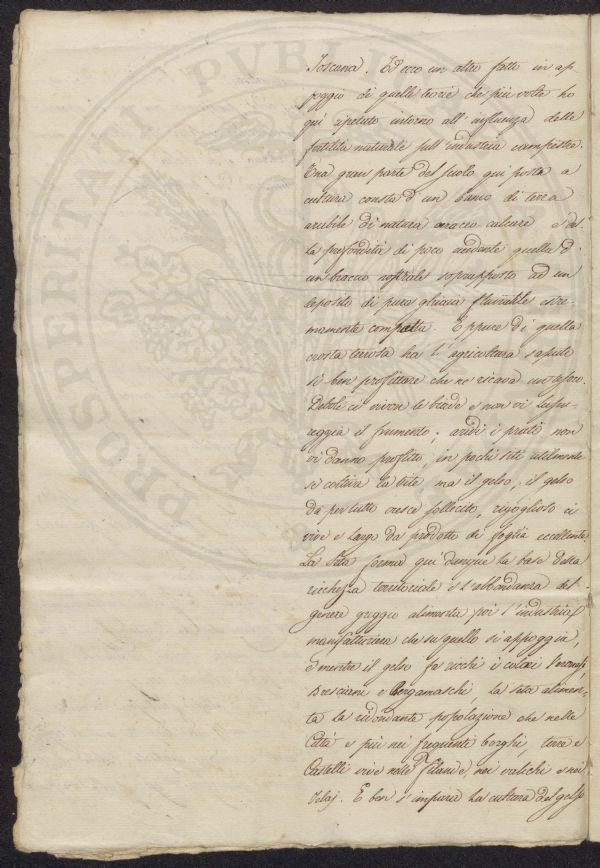 Toscana. Ed ecco un altro fatto in ap-
poggio di quelle teorie che più volte ho
quì ripetuto intorno all'influenza della
fertilità naturale sull'industria campestre.
Una gran parte del suolo quì posta a
cultura consta d'un banco di terra
arabile di natura calcare e del-
la profondità di poco andante quella d'
un braccio soprapposto ad un
deposito di pura ghiaia fluviatile estre-
mamente compatta. Eppure di quella
crosta terrosa ha l'agricoltura saputo
sì ben profittare che ne ricava un tesoro.
Deboli ci vivon le biade e non vi lussu-
reggia il frumento; aridi i prati non
vi danno profitto, in pochi siti utilmente
si coltiva la vite ma il gelso, il gelso
da per tutto cresce sollecito, rigoglioso ci
vive e largo da prodotto di foglia eccellente
La Seta forma quì dunque la base della
ricchezza territoriale e l'abbondanza del
genere greggio alimenta poi l'industria
manifatturiera che su quello si appoggia,
e mentre il gelso fa ricchi i coloni
Bresciani e Bergamaschi la seta alimen-
ta la ridondante popolazione che nelle
Città e più nei frequenti borghi, terre e
Castelli vive nelle Filande, nei valichi e nei
Telaj. E ben s'impara la cultura del gelso
PROSPERITATI PUBLI